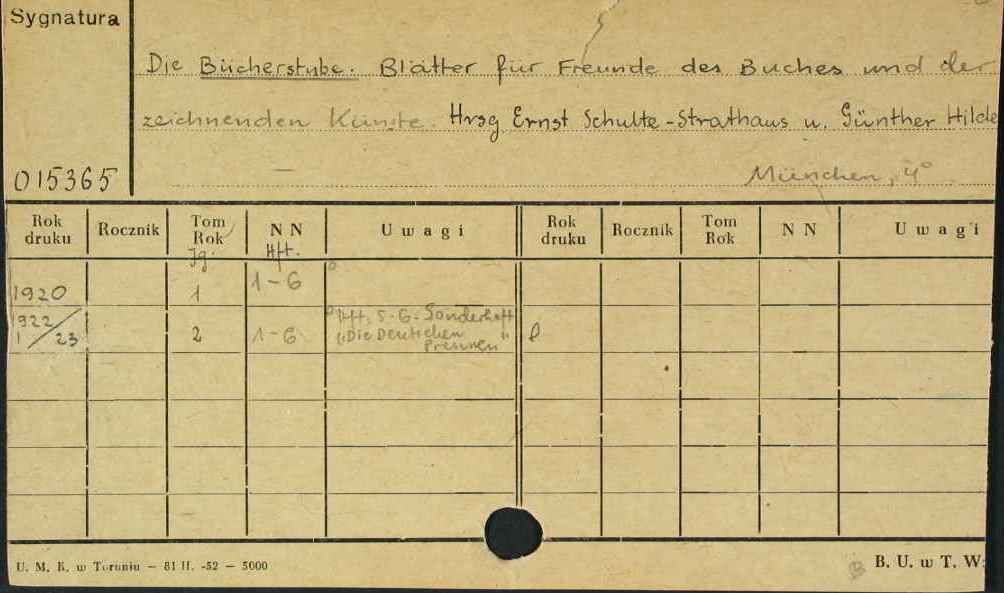 Sygnatura
Die Bücherstube. Blätter für Freunde des Buches und der
zeichnenden Künste. Hrsg Ernst Schulte-Strathaus u. Günther Hilde
015365 München, 4°
Rok druku Rocznik Tom Rok Jg. NN Hft. Uwagi Rok druku Rocznik Tom Rok NN Uwagi
1920 1 1-6
1922/23 2 1-6 Hft. 5-6. Sonderheft
"Die Deutschen
Pressen"
U. M. K. w Toruniu — 81 II. -52 — 5000
B. U. w T. W: